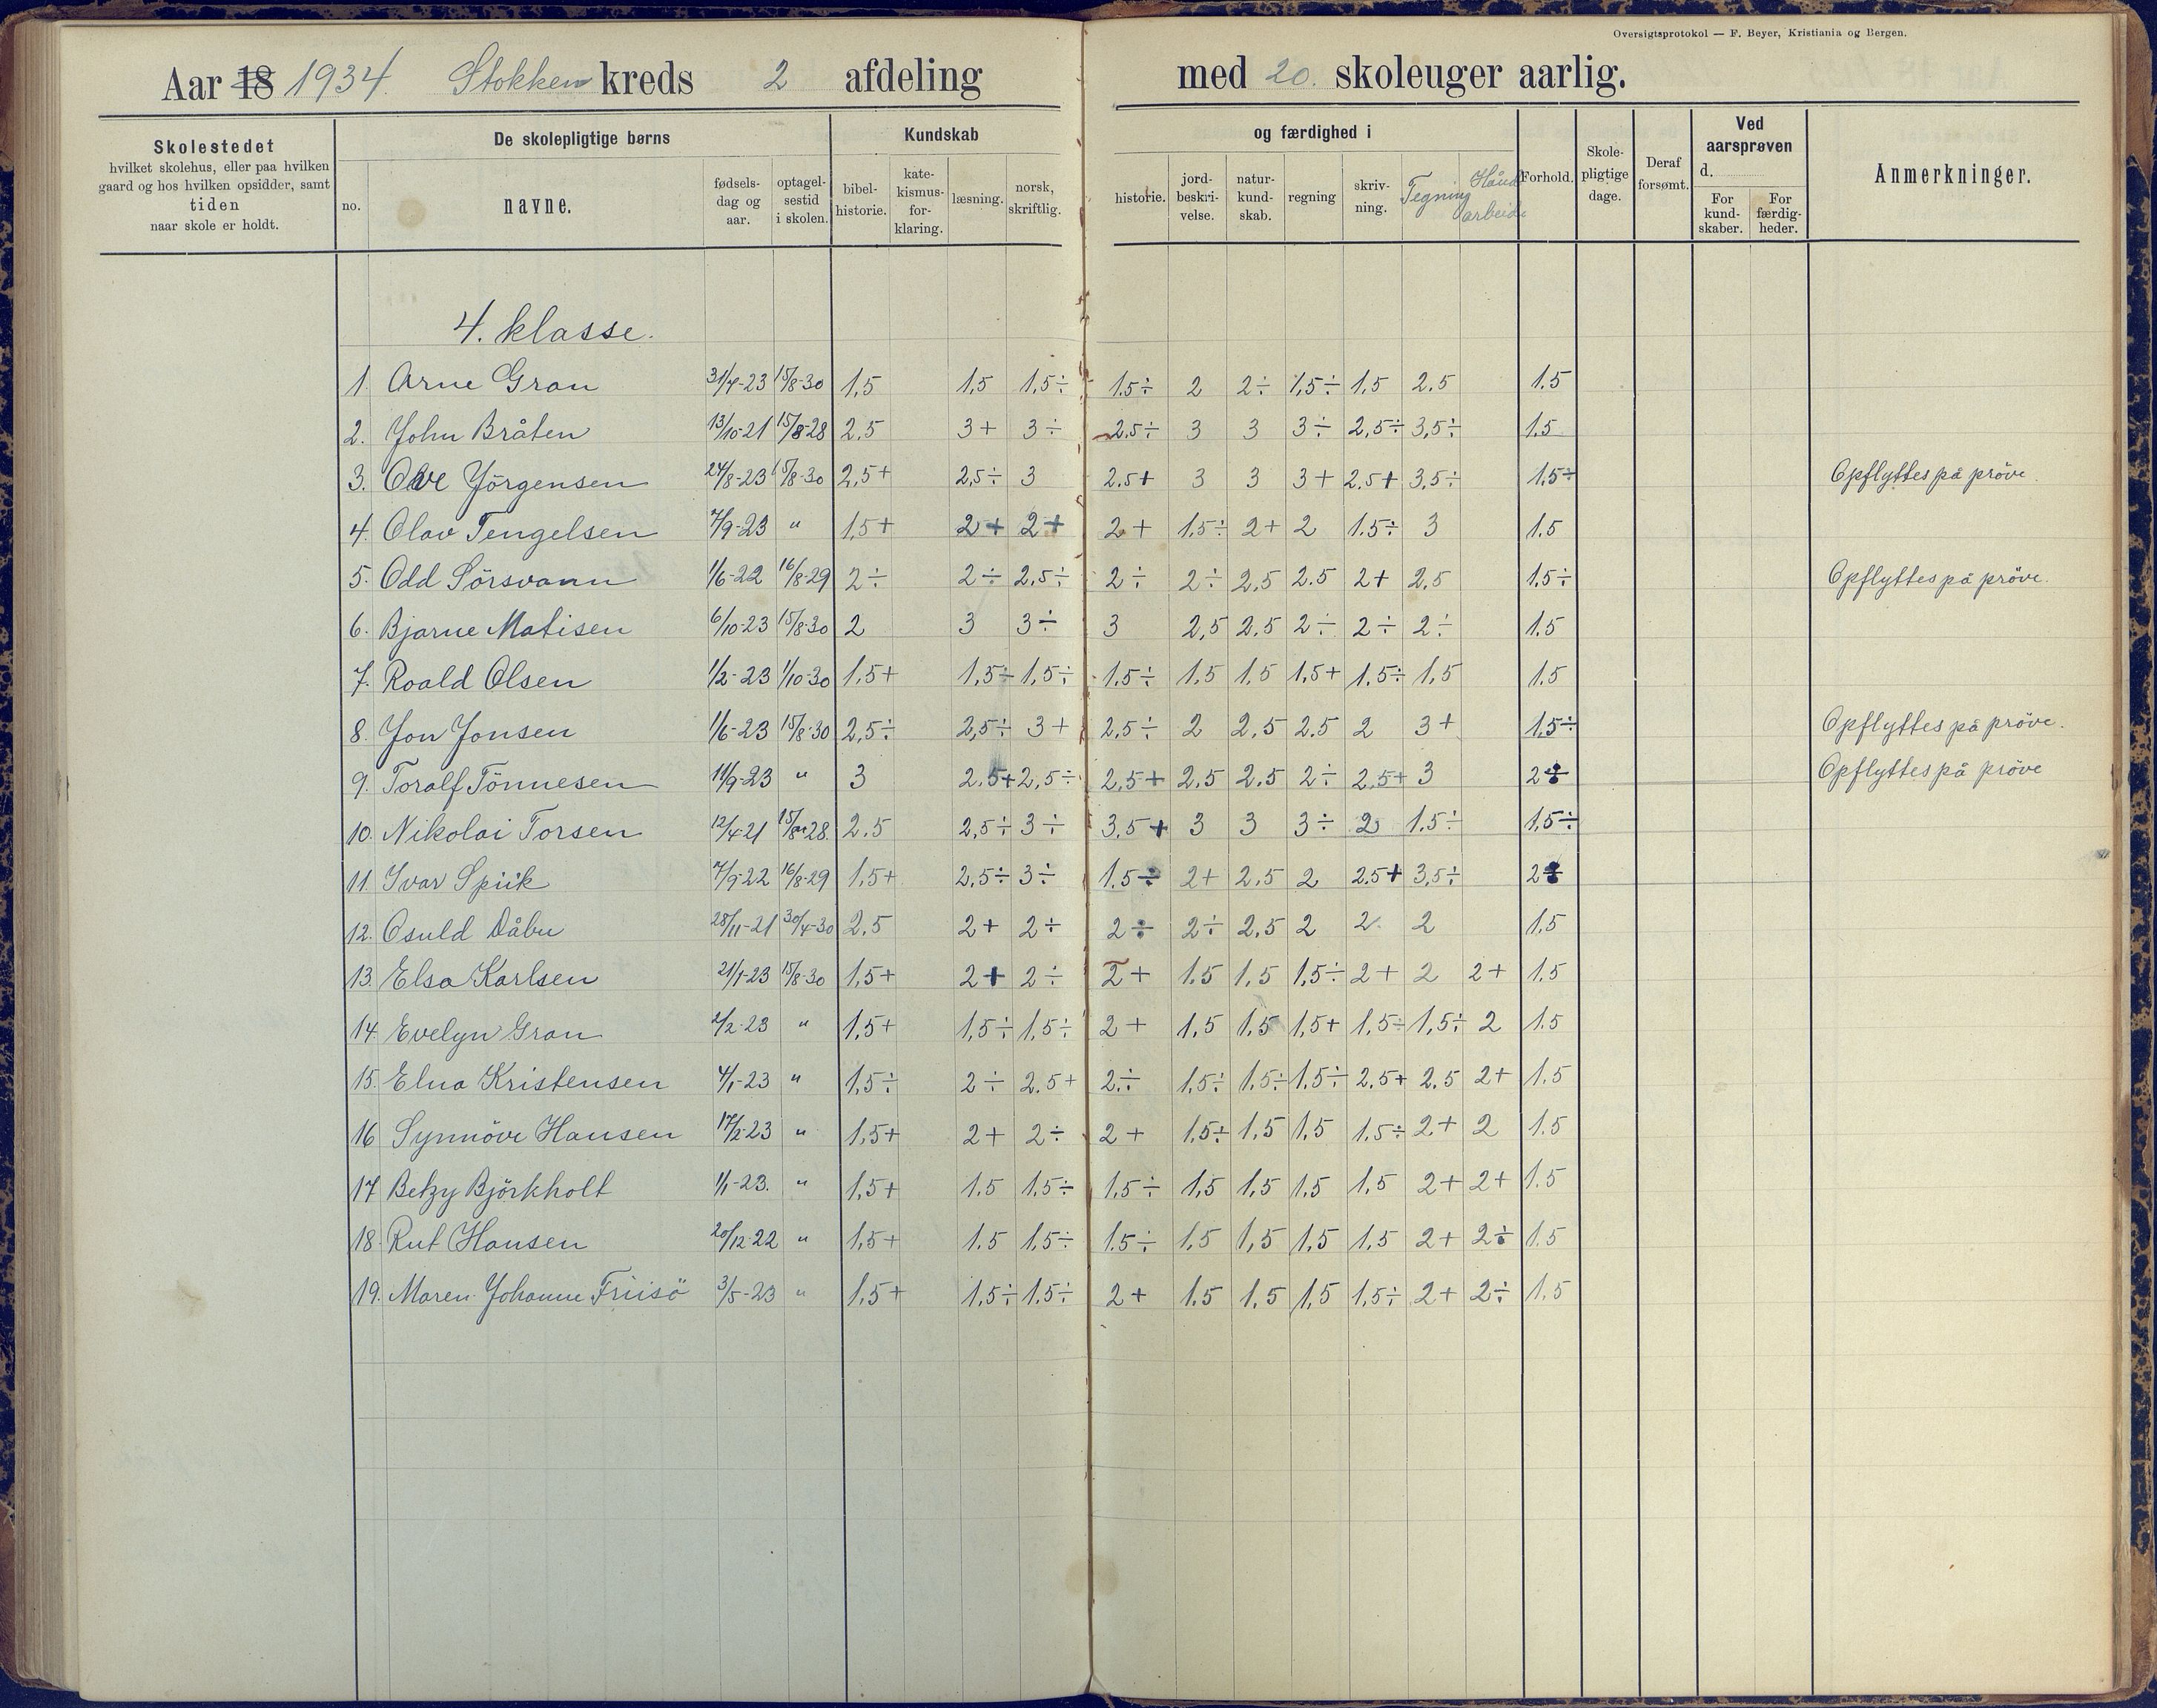 Oversigtsprotokol — F. Beyer, Kristiania og Bergen.
Aar 18 1934. Stokken kreds 2 afdeling med 20. skoleuger aarlig.
Skolestedet
hvilket skolehus, eller paa hvilken
gaard og hos hvilken opsidder, samt
tiden
naar skole er holdt.
De skolepligtige børns
no.
navne.
fødsels-
dag og
aar.
optagel-
sestid
i skolen.
Kundskab
bibel-
historie.
kate-
kismus-
for-
klaring.
læsning.
norsk,
skriftlig.
og færdighed i
historie.
jord-
beskri-
velse.
natur-
kund-
skab.
regning
skriv-
ning.
Tegning
Hånd
arbeid.
Forhold.
Skole-
pligtige
dage.
Deraf
forsømt.
Ved
aarsprøven
d.
For
kund-
skaber.
For
færdig-
heder.
Anmerkninger.
4. klasse.
1. Arne Gran 31/7-23 15/8-30 1,5 1,5 1,5÷ 1.5÷ 2 2÷ 1,5÷ 1,5 2.5 1.5
2. John Bråten 13/10-21 15/8-28 2.5 3+ 3÷ 2.5÷ 3 3 3÷ 2,5÷ 3,5÷ 1.5
3. Ove Jörgensen 24/8-23 15/8-30 2,5+ 2,5÷ 3 2.5+ 3 3 3+ 2.5+ 3,5÷ 1.5÷ Opflyttes på pröve.
4. Olav Tengelsen 7/9-23 " 1,5+ 2+ 2+ 2+ 1.5÷ 2+ 2 1.5÷ 3 1.5
5. Odd Sörsvann 1/6-22 16/8-29 2÷ 2÷ 2,5÷ 2÷ 2÷ 2,5 2.5 2+ 2,5 1.5÷ Opflyttes på pröve.
6. Bjarne Matisen 6/10-23 15/8-30 2 3 3÷ 3 2,5 2.5 2÷ 2÷ 2÷ 1.5
7. Roald Olsen 1/2-23 1/10-30 1,5+ 1,5÷ 1,5÷ 1.5÷ 1.5 1.5 1,5+ 1.5÷ 1,5 1.5
8. Jon Jonsen 1/6-23 15/8-30 2,5÷ 2,5÷ 3+ 2,5÷ 2 2.5 2.5 2 3+ 1.5÷ Opflyttes på pröve.
9. Toralf Tönnesen 11/9-23 " 3 2.5+ 2,5÷ 2,5+ 2.5 2.5 2÷ 2.5+ 3 2÷ Opflyttes på pröve
10. Nikolai Torsen 12/4-21 15/8-28. 2.5 2,5÷ 3÷ 3.5+ 3 3 3÷ 2 1.5÷ 1,5÷
11. Ivar Spiik 7/9-22 16/8-29 1,5+ 2,5÷ 3÷ 1.5÷ 2+ 2.5 2 2.5+ 3,5÷ 2
12. Osuld Dåbu 28/11-21 30/4-30 2,5 2+ 2÷ 2÷ 2÷ 2.5 2 2 2 1.5
13. Elsa Karlsen 21/1-23 15/8-30 1,5+ 2+ 2÷ 2+ 1.5 1,5 1,5÷ 2+ 2 2+ 1.5
14. Evelyn Gran 2/2-23 " 1,5+ 1,5÷ 1,5÷ 2+ 1,5 1.5 1,5+ 1,5÷ 1,5÷ 2 1.5
15. Elna Kristensen 4/1-23 " 1,5÷ 2÷ 2.5+ 2÷ 1,5÷ 1.5÷ 1.5÷ 2,5+ 2.5 2+ 1.5
16 Synnöve Hansen 17/2-23 " 1,5+ 2+ 2÷ 2+ 1.5÷ 1,5 1,5 1.5÷ 2+ 2 1.5
17 Betzy Björkholt 1/1-23. " 1,5+ 1.5 1.5÷ 1,5÷ 1,5 1,5 1.5 1,5 2+ 2+ 1.5
18. Rut Hansen 20/12-22 " 1,5+ 1.5 1,5÷ 1.5÷ 1,5 1,5 1,5 1,5 2+ 2÷ 1.5
19. Maren Johanne Friisö 3/5-23 " 1,5+ 1,5÷ 1.5÷ 2+ 1.5 1,5 1,5 1,5÷ 2+ 2÷ 1.5